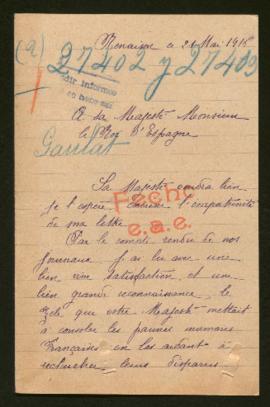 Renaison ce 21 Mai 1915
(a) 27402 y 27403
Pedir informes
en nota así
A Sa Majesté Monsieur
le Roy d'Espagne
Gaulat
Sa Majesté voudra bien
je l'espère excuser l'importunité
de ma lettre
Fecho
e.a.e.
Par le compte rendu de nos
journaux j'ai lu avec une
bien vive satisfaction et une
bien grande reconnaissance le
zèle que votre Majesté mettait
à consoler les pauvres mamans
Françaises en les aidant à
rechercher leurs disparus.